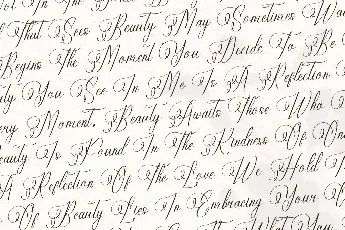 Not In The
That Sees Beauty May Sometimes Wa
Begins The Moment You Decide To Be
ty You See In Me Is A Reflection
ery Moment, Beauty Awaits Those Who
eauty Is Found In The Kindness Of On
A Reflection Of The Love We Hold
Of Beauty Lies In Embracing Your
That What You